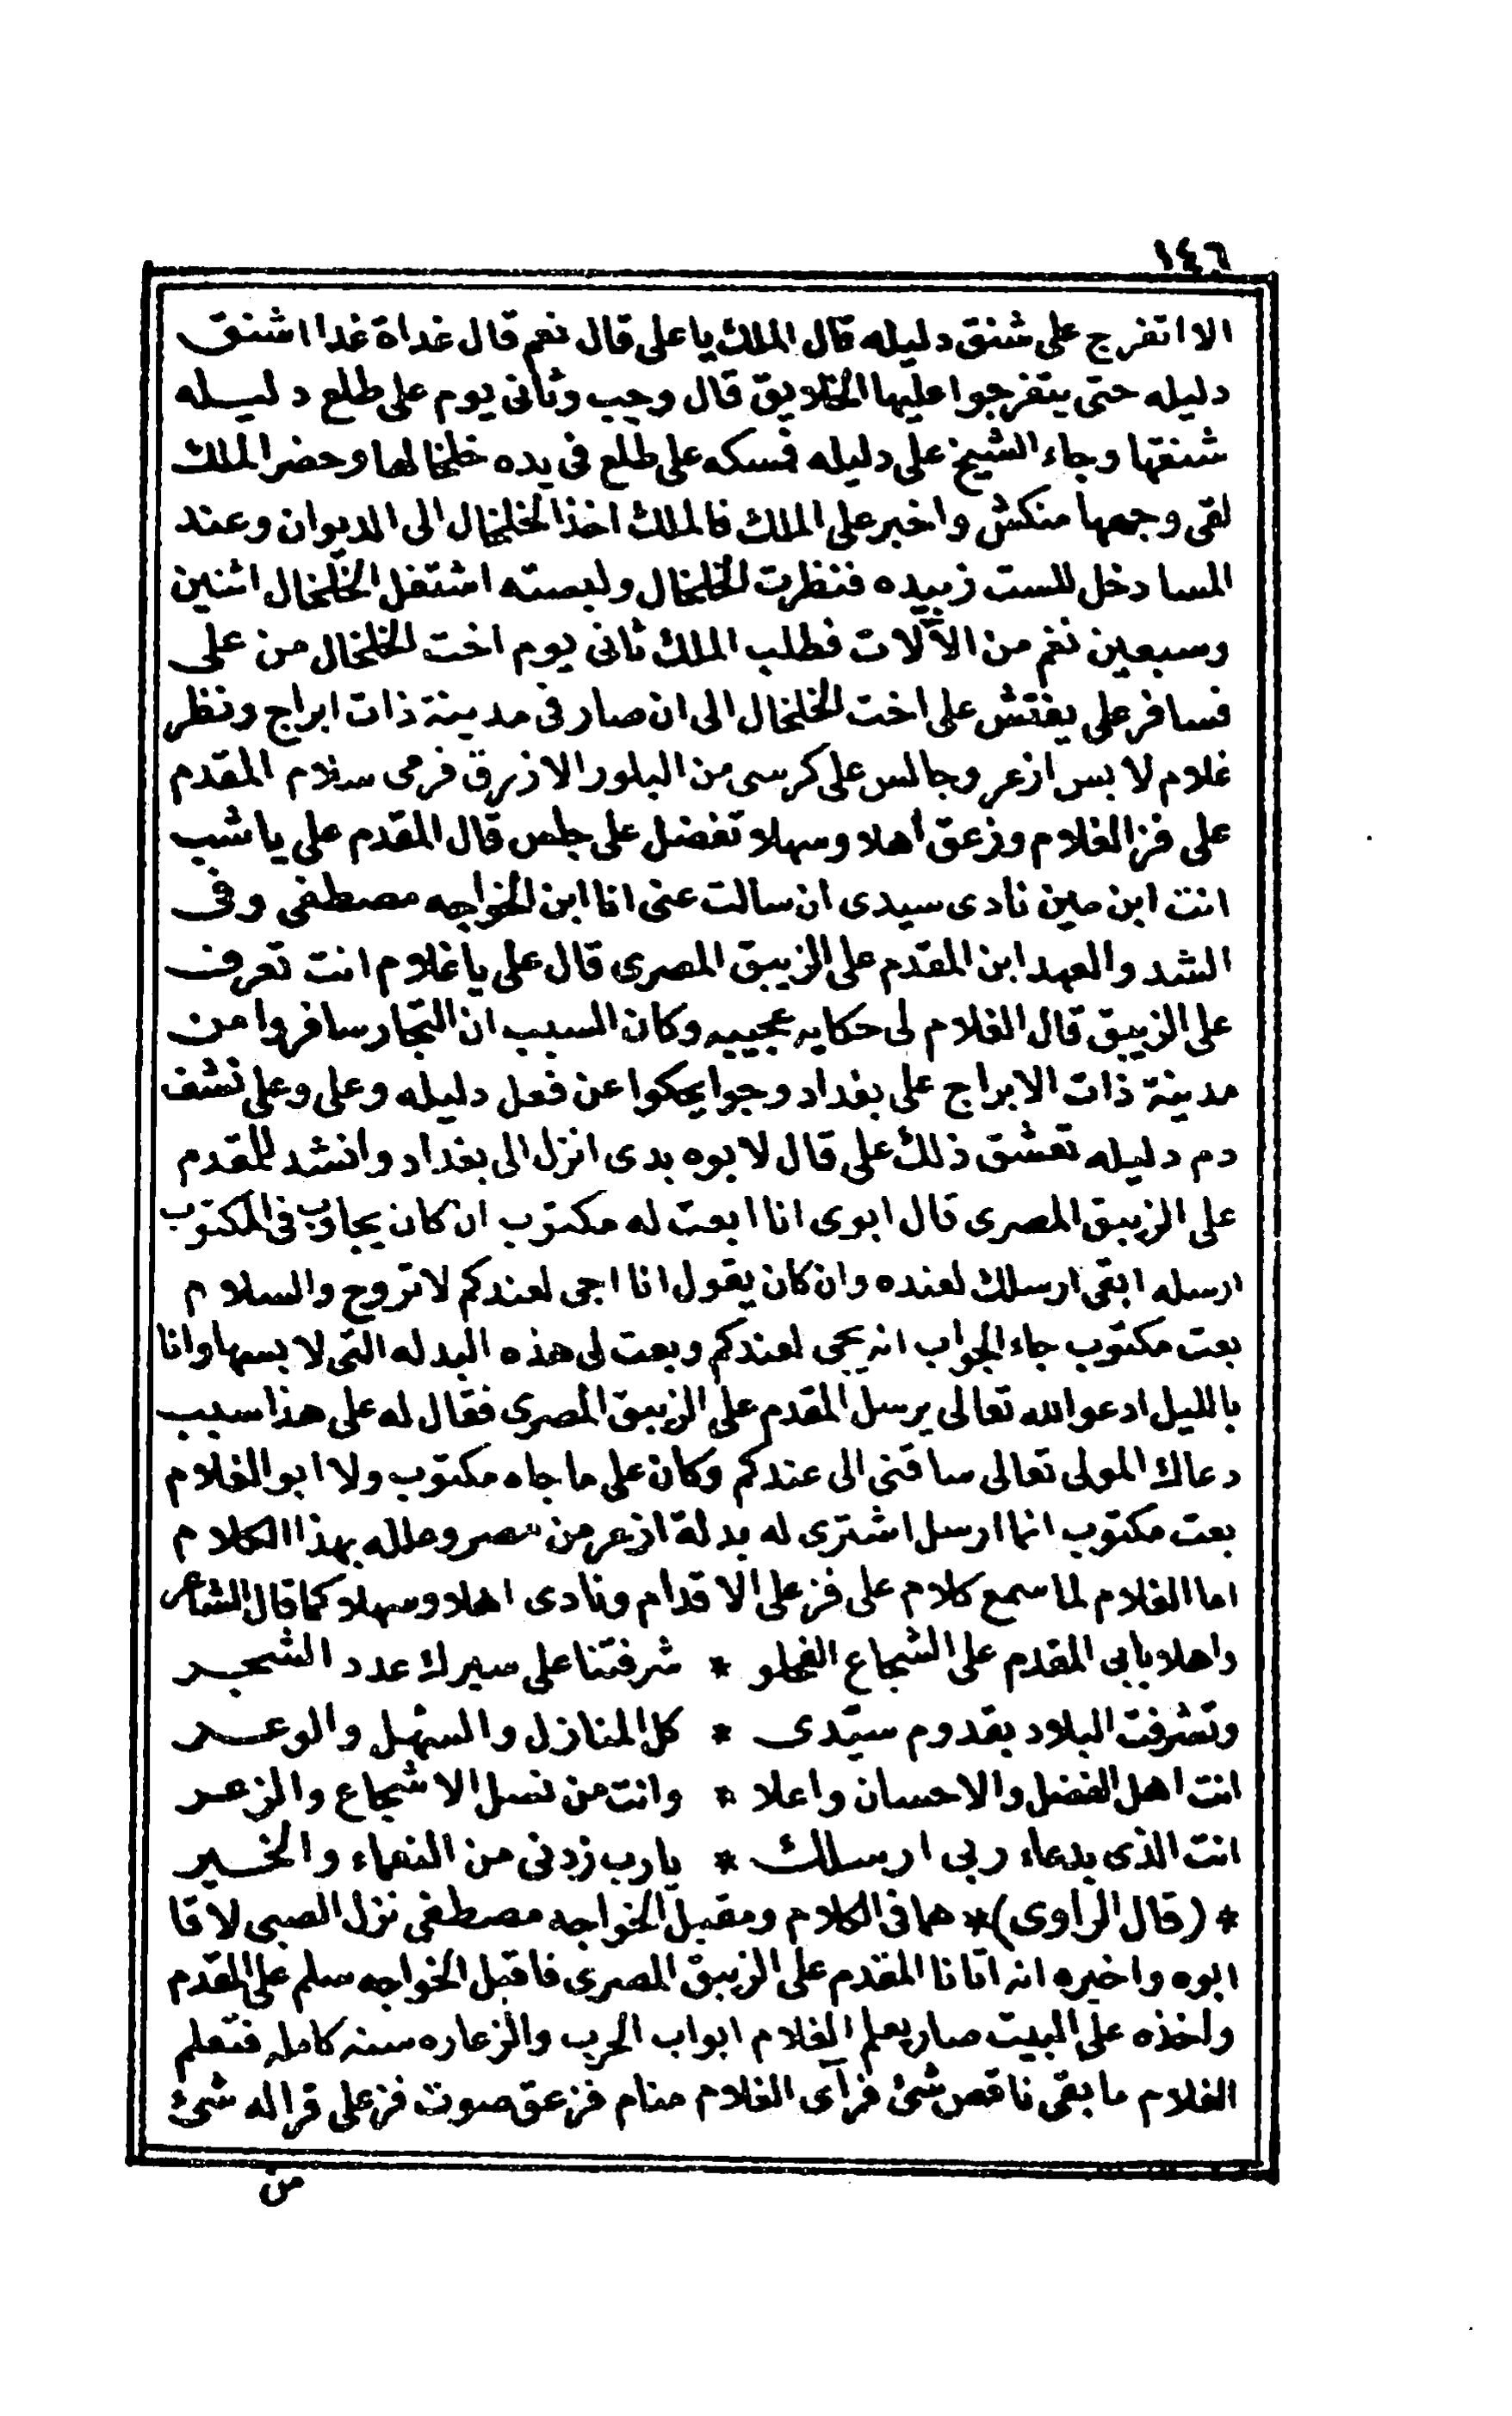 ١٤٦
الا اتفرج على شنق دليله قال الملك يا على قال نعم قال غداة غدا اشنق
دليله حتى يتفرجوا عليها الخلايق قال وجب وثانى يوم على طلع دليله
شنقها وجاء الشيخ على دليله فمسكه على طلع فى يده خلخالها وحضر الملك
لقى وجهها منكش واخبر على الملك فالملك اخذ الخلخال الى الديوان وعند
المسا دخل للست زبيده فنظرت الخلخال ولبسته اشتغل الخلخال اثنين
وسبعين نغم من الآلات فطلب الملك ثانى يوم اخت الخلخال من على
فسافر على يفتش على اخت الخلخال الى ان صار فى مدينة ذات ابراج ونظر
غلام لابس ازعر وجالس على كرسى من البلور الازرق فرمى سلام المقدم
على فز الغلام وزعق اهلا وسهلا تفضل على جلس قال المقدم على يا شب
انت ابن مين نادى سيدى ان سالت عنى انا ابن الخواجه مصطفى وفى
الشد والعهد ابن المقدم على الزيبق المصرى قال على يا غلام انت تعرف
على الزيبق قال الغلام لى حكايه عجيبه وكان السبب ان التجار سافروا من
مدينة ذات الابراج على بغداد وجوا يحكوا عن فعل دليله وعلى وعلى نشف
دم دليله تعشق ذلك على قال لابوه بدى انزل الى بغداد وانشد للمقدم
على الزيبق المصرى قال ابوى انا ابعت له مكتوب ان كان يجاوب فى المكتوب
ارسله ابقى ارسلك لعنده وان كان يقول انا اجى لعندكم لا تروح والسلام
بعت مكتوب جاء الجواب انه يجى لعندكم وبعت لى هذه البدله التى لابسها وانا
بالليل ادعو الله تعالى يرسل المقدم على الزيبق المصرى فقال له على هذا سبب
دعاك المولى تعالى ساقنى الى عندكم وكان على ما جاه مكتوب ولا ابو الغلام
بعت مكتوب انما ارسل اشترى له بدلة ازعر من مصر وعلله بهذا الكلام
اما الغلام لما سمع كلام على فز على الاقدام ونادى اهلا وسهلا كما قال الشاعر
واهلا بابى المقدم على الشجاع الفحلو * شرفتنا على سيرك عدد الشجر
وتشرفت البلاد بقدوم سيّدى * كل المنازل والسّهل والوعر
انت اهل الفضل والاحسان واعلا * وانت من نسل الاشجاع والزعر
انت الذى بدعاء ربى ارسلك * يا رب زدنى من النعماء والخير
* (قال الراوى) * هما فى الكلام ومقبل الخواجه مصطفى نزل الصبى لاقا
ابوه واخبره انه اتانا المقدم على الزيبق المصرى فاقبل الخواجه سلم على المقدم
واخذه على البيت صار يعلم الغلام ابواب الحرب والزعاره سنه كامله فتعلم
الغلام ما بقى ناقص شئ فرآى الغلام منام فزعق صوت فز على قرا له شئ
من